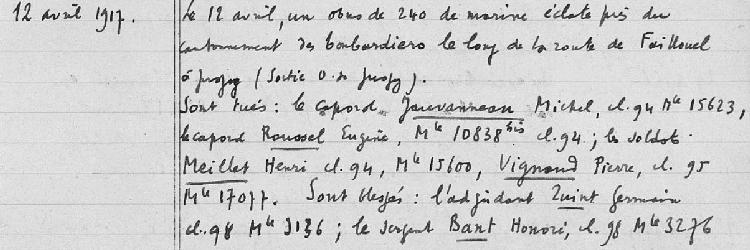 12 avril 1917. Le 12 avril, un obus de 240 de marine éclate près du
cantonnement des bombardiers le long de la route de Faillouel
à Jussy (Sortie O. de Jussy).
Sont tués : le caporal Michel, cl. 94 Mle 15623,
le caporal Roussel Eugène, Mle 10838 bis cl. 94 ; les soldats
Meillet Henri cl. 94, Mle 15600, Vignaud Pierre, cl. 95
Mle 17077. Sont blessés : l'adjudant Germain
cl. 98 Mle 3136 ; le sergent Bant Honoré, cl. 98 Mle 3276